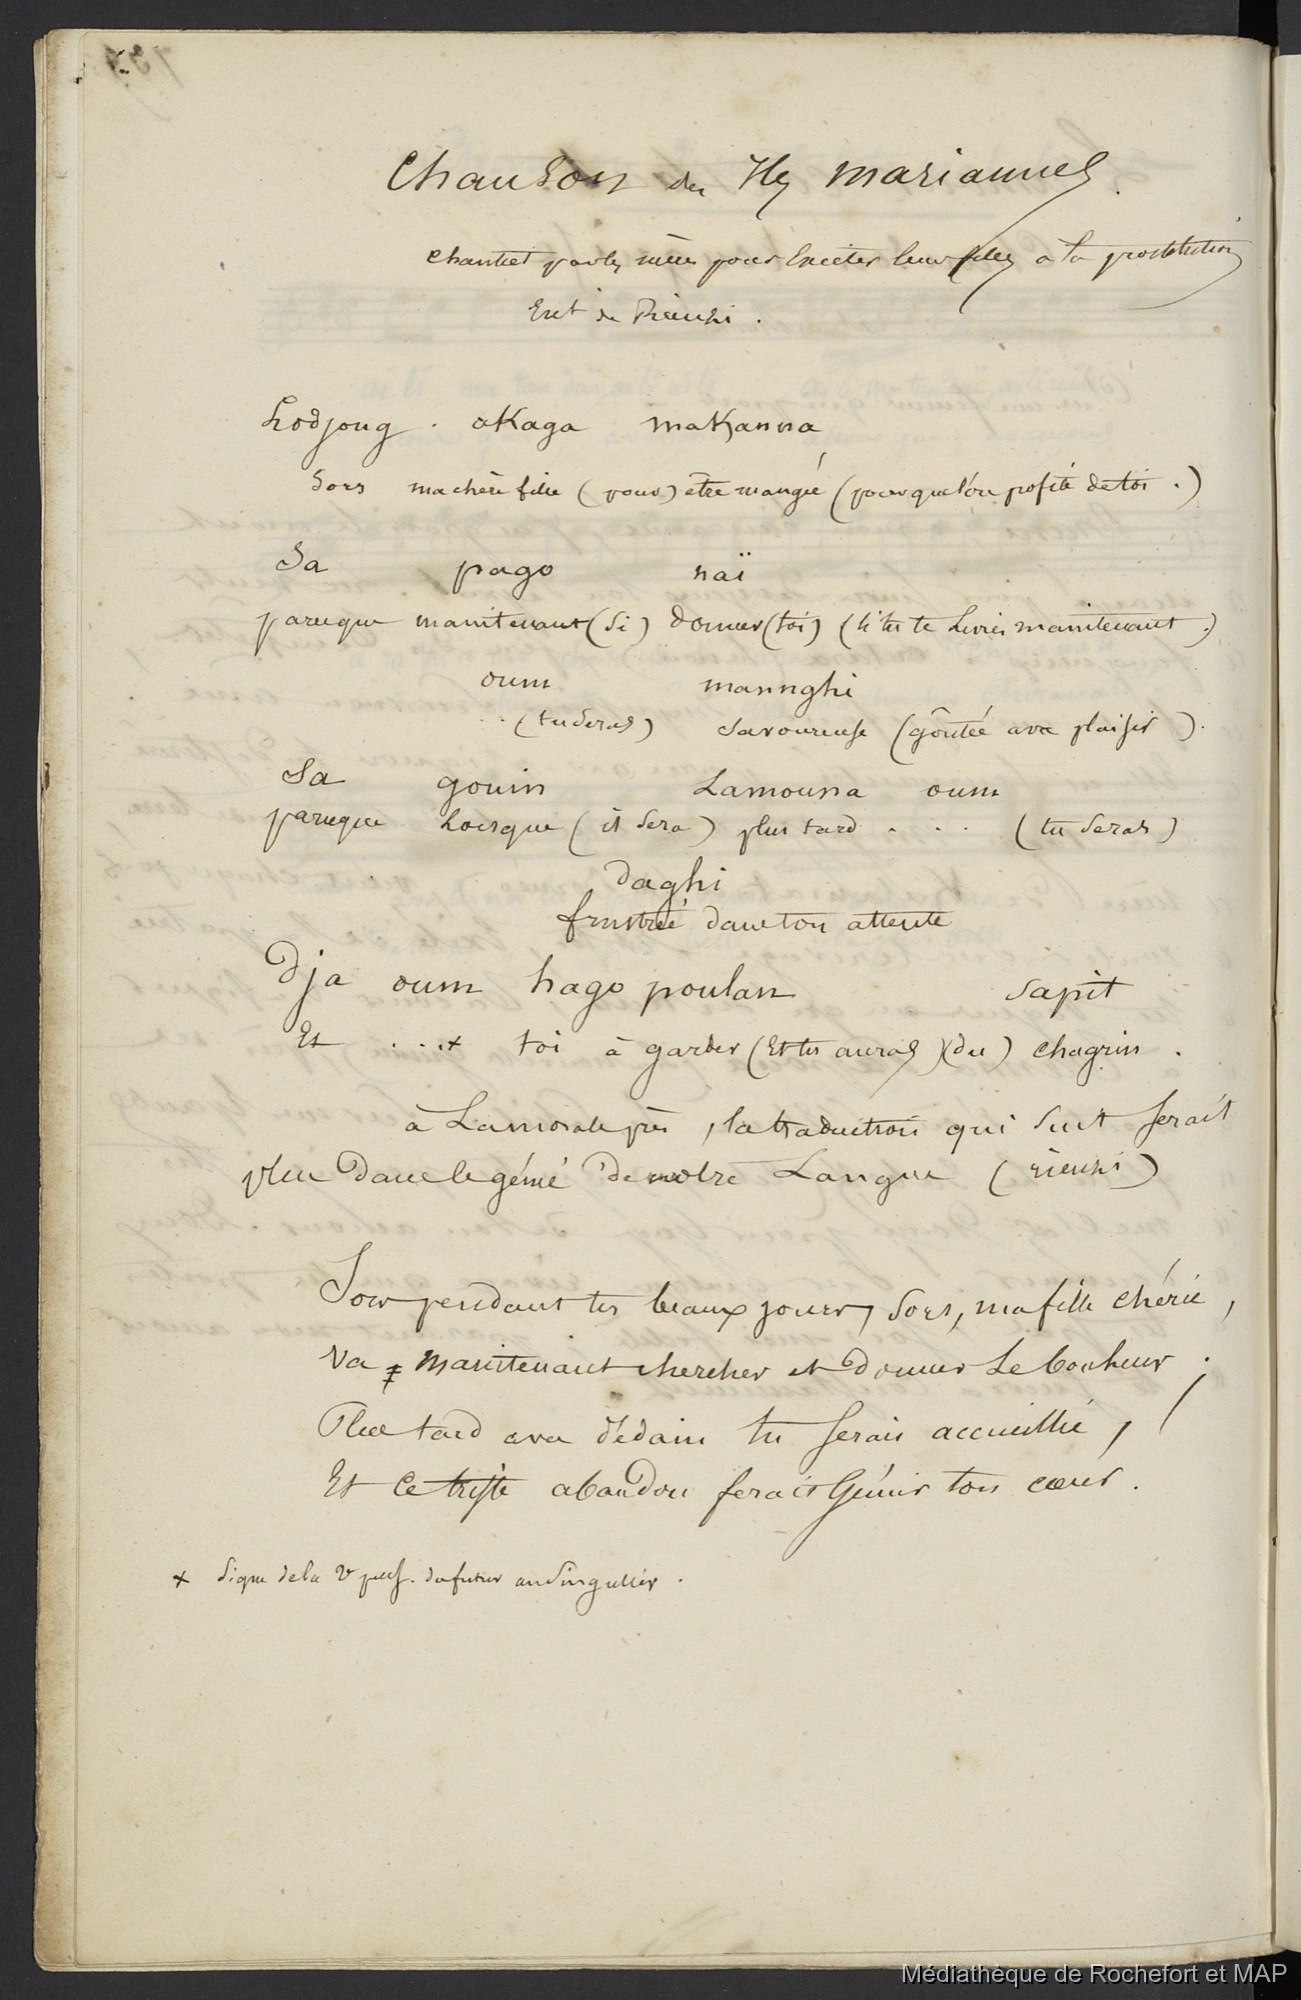 Chanson des Iles mariannes.
chantées par les mères pour Exciter leurs filles à la prostitution
Ext de Rienzi.
Lodjong. akaga makanna
Sors ma chère fille (pour) etre mangée (pour que l'on profite de toi.)
Sa pago naï
parceque maintenant (si) donner (toi) (si tu te Livres maintenant.)
oum mannghi
. . (tu seras) savoureuse (goûtée avec plaisir).
Sa gouin Lamouna oum
parceque Lorsque (il sera) plus tard . . . (tu seras)
daghi
frustrée dans ton attente
Dja oum hago poulan sapit
Et . . .+ toi à garder (Et tu auras) (du) chagrin.
à La morale près, la traduction qui suit serait
plus dans le génie de notre Langue (rienzi)
Jouis pendant tes beaux jours, sors, ma fille chérie,
Va maintenant chercher et donner Le bonheur;
Plus tard avec dédain tu serais accueillie,
Et Ce triste abandon ferait Gémir ton cœur.
+ Signe de la 2e pers. du futur au singulier.
Médiathèque de Rochefort et MAP